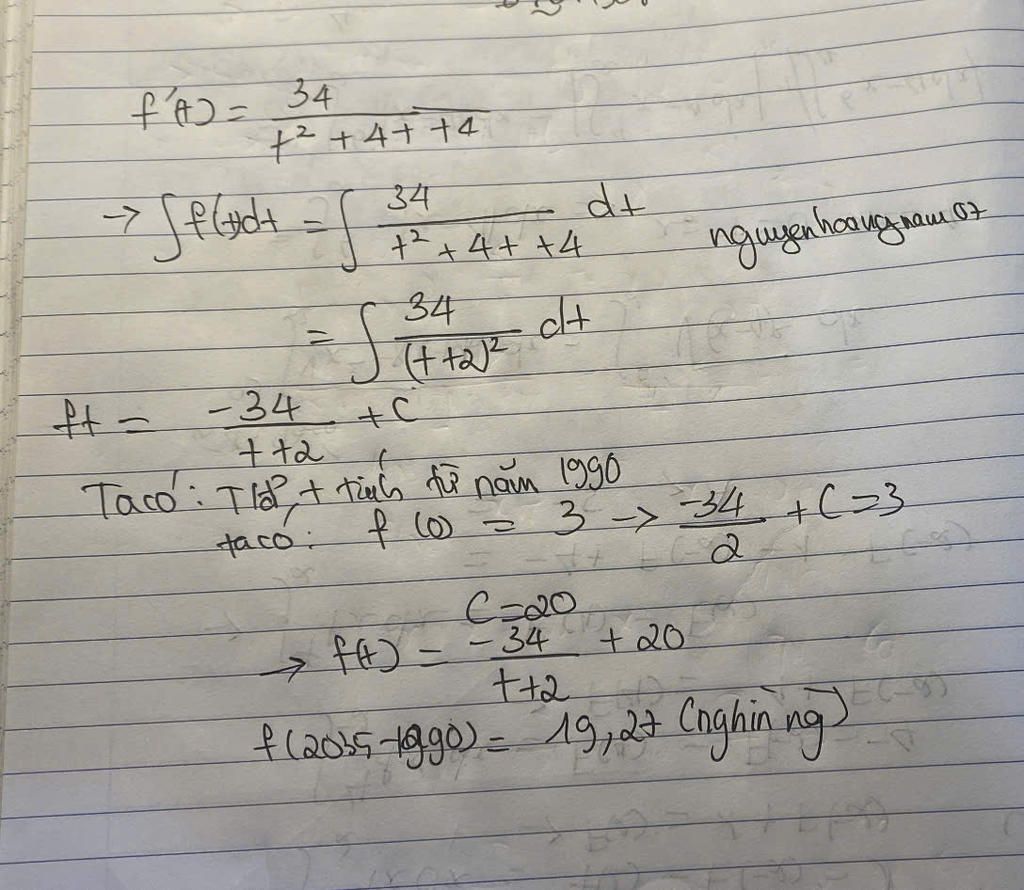 f'(t) = 34 / (t² + 4t + 4)
→ ∫f(t)dt = ∫ 34 / (t² + 4t + 4) dt
nguyenhoangnam07
= ∫ 34 / (t+2)² dt
ft = -34 / (t+2) + C
Ta có: t tính từ năm 1990
ta có: f(0) = 3 → -34/2 + C = 3
C = 20
→ f(t) = -34 / (t+2) + 20
f(2035-1990) = 19,27 (nghìn ng)